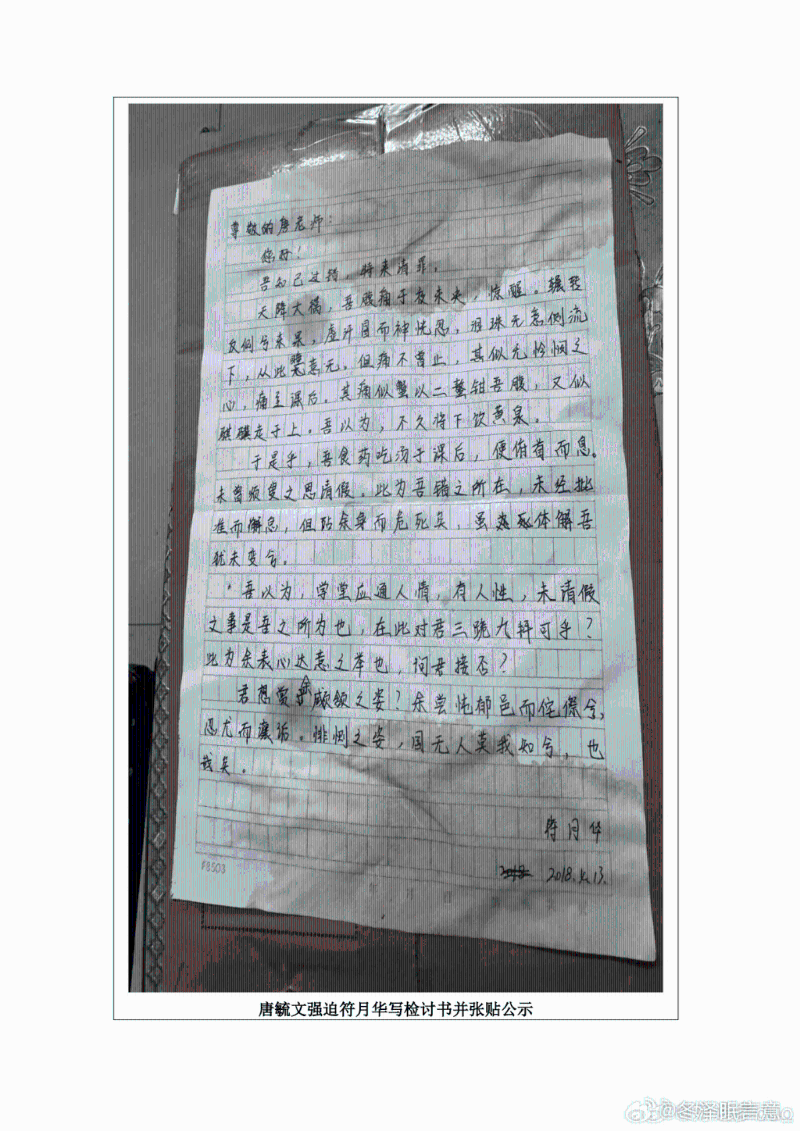 尊敬的唐老师：
你好！
吾知己过错，特来请罪。
天降大祸，吾腹痛于夜未央，惊醒。辗转
反侧兮未果，虚汗冒而神恍忽，泪珠无意倒流
下，从此 意无。但痛不曾止，其似无怜悯之
心，痛至课后。其痛似蟹以二螯钳吾腹，又似
骐骥走于上。吾以为，不久将下饮黄泉。
于是乎，吾食药吃汤于课后，便俯首而息。
未曾顾复之思请假。此为吾错之所在，未经批
准而懈怠，但阽余身而危死矣，虽 死体解吾
犹未变兮。
吾以为，学堂应通人情，有人性，未请假
之事是吾之所为也，在此对君三跪九拜可乎？
此为余表心达意之举也，问君接否？
君想赏余顑颔之姿？余尝忳郁邑而侘傺兮，
忍尤而攘诟。悱恻之姿，国无人莫我知兮，也
哉矣。
符月华
2018. .13.
68503
唐毓文强迫符月华写检讨书并张贴公示
@冬泽眠善意